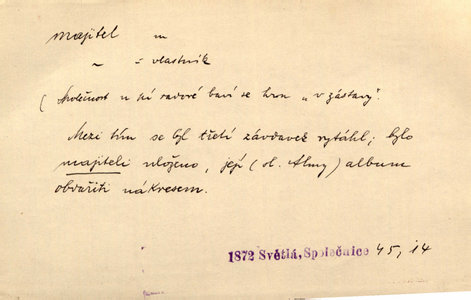 majitel m
~ = vlastník
(Společnost u paní radové baví se hrou „v zástavy“.
Mezi tím se byl třetí závdavek vytáhl; bylo
majiteli uloženo, její (sl. Almy) album
obdařiti nákresem.
1872 Světlá, Společnice 45, 14